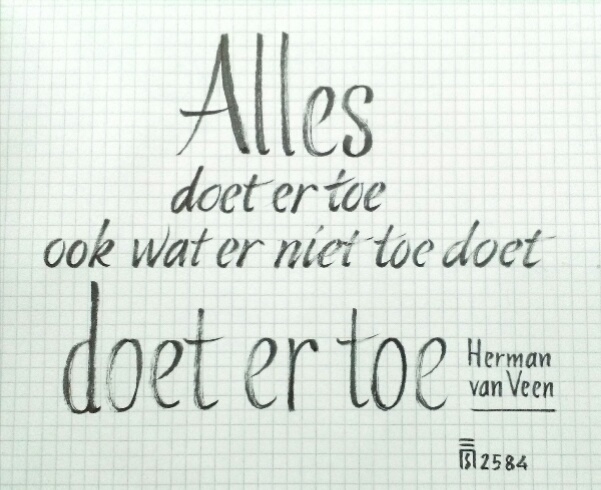 Alles
doet er toe
ook wat er niet toe doet
doet er toe
Herman
van Veen
2584